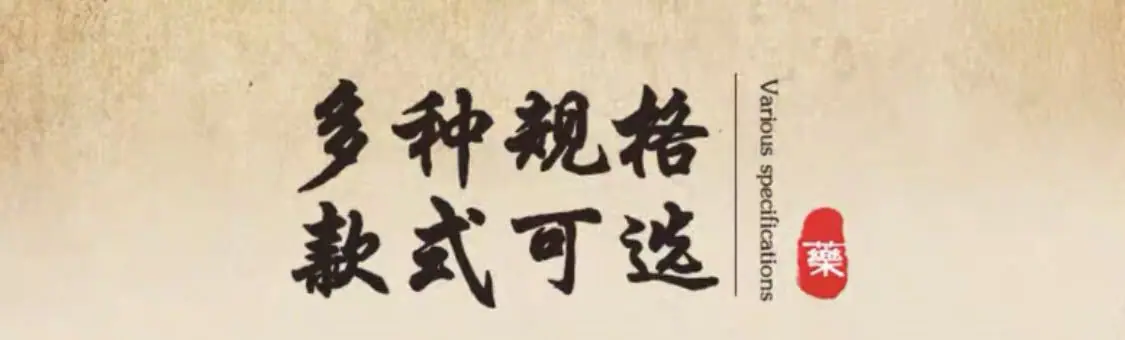 多种规格
款式可选
Various specifications
藥